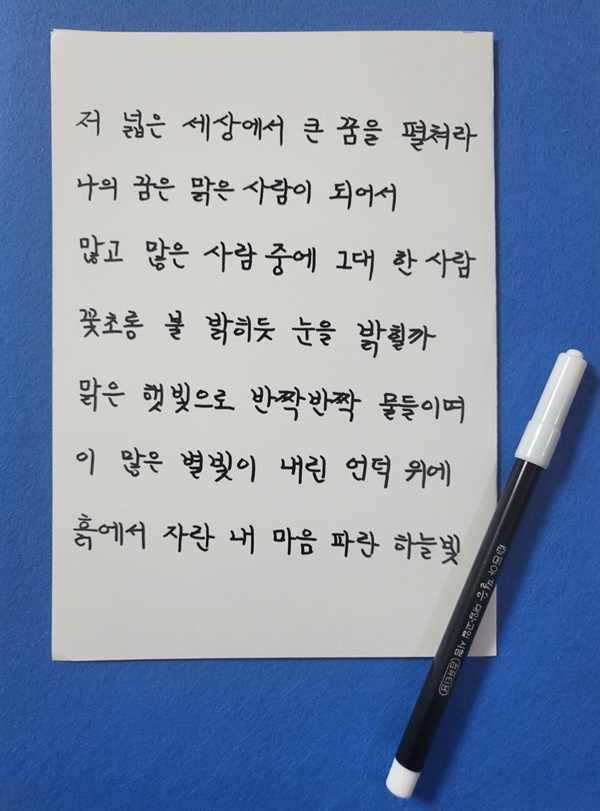 저 넓은 세상에서 큰 꿈을 펼쳐라
나의 꿈은 맑은 사람이 되어서
많고 많은 사람 중에 그대 한 사람
꽃초롱 불 밝히듯 눈을 밝힐까
맑은 햇빛으로 반짝반짝 물들이며
이 많은 별빛이 내린 언덕 위에
흙에서 자란 내 마음 파란 하늘빛
동아